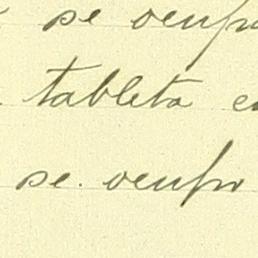 se ocupo
tableta
se ocupo